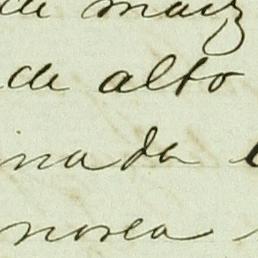 de maiz
de alto
nada
norea